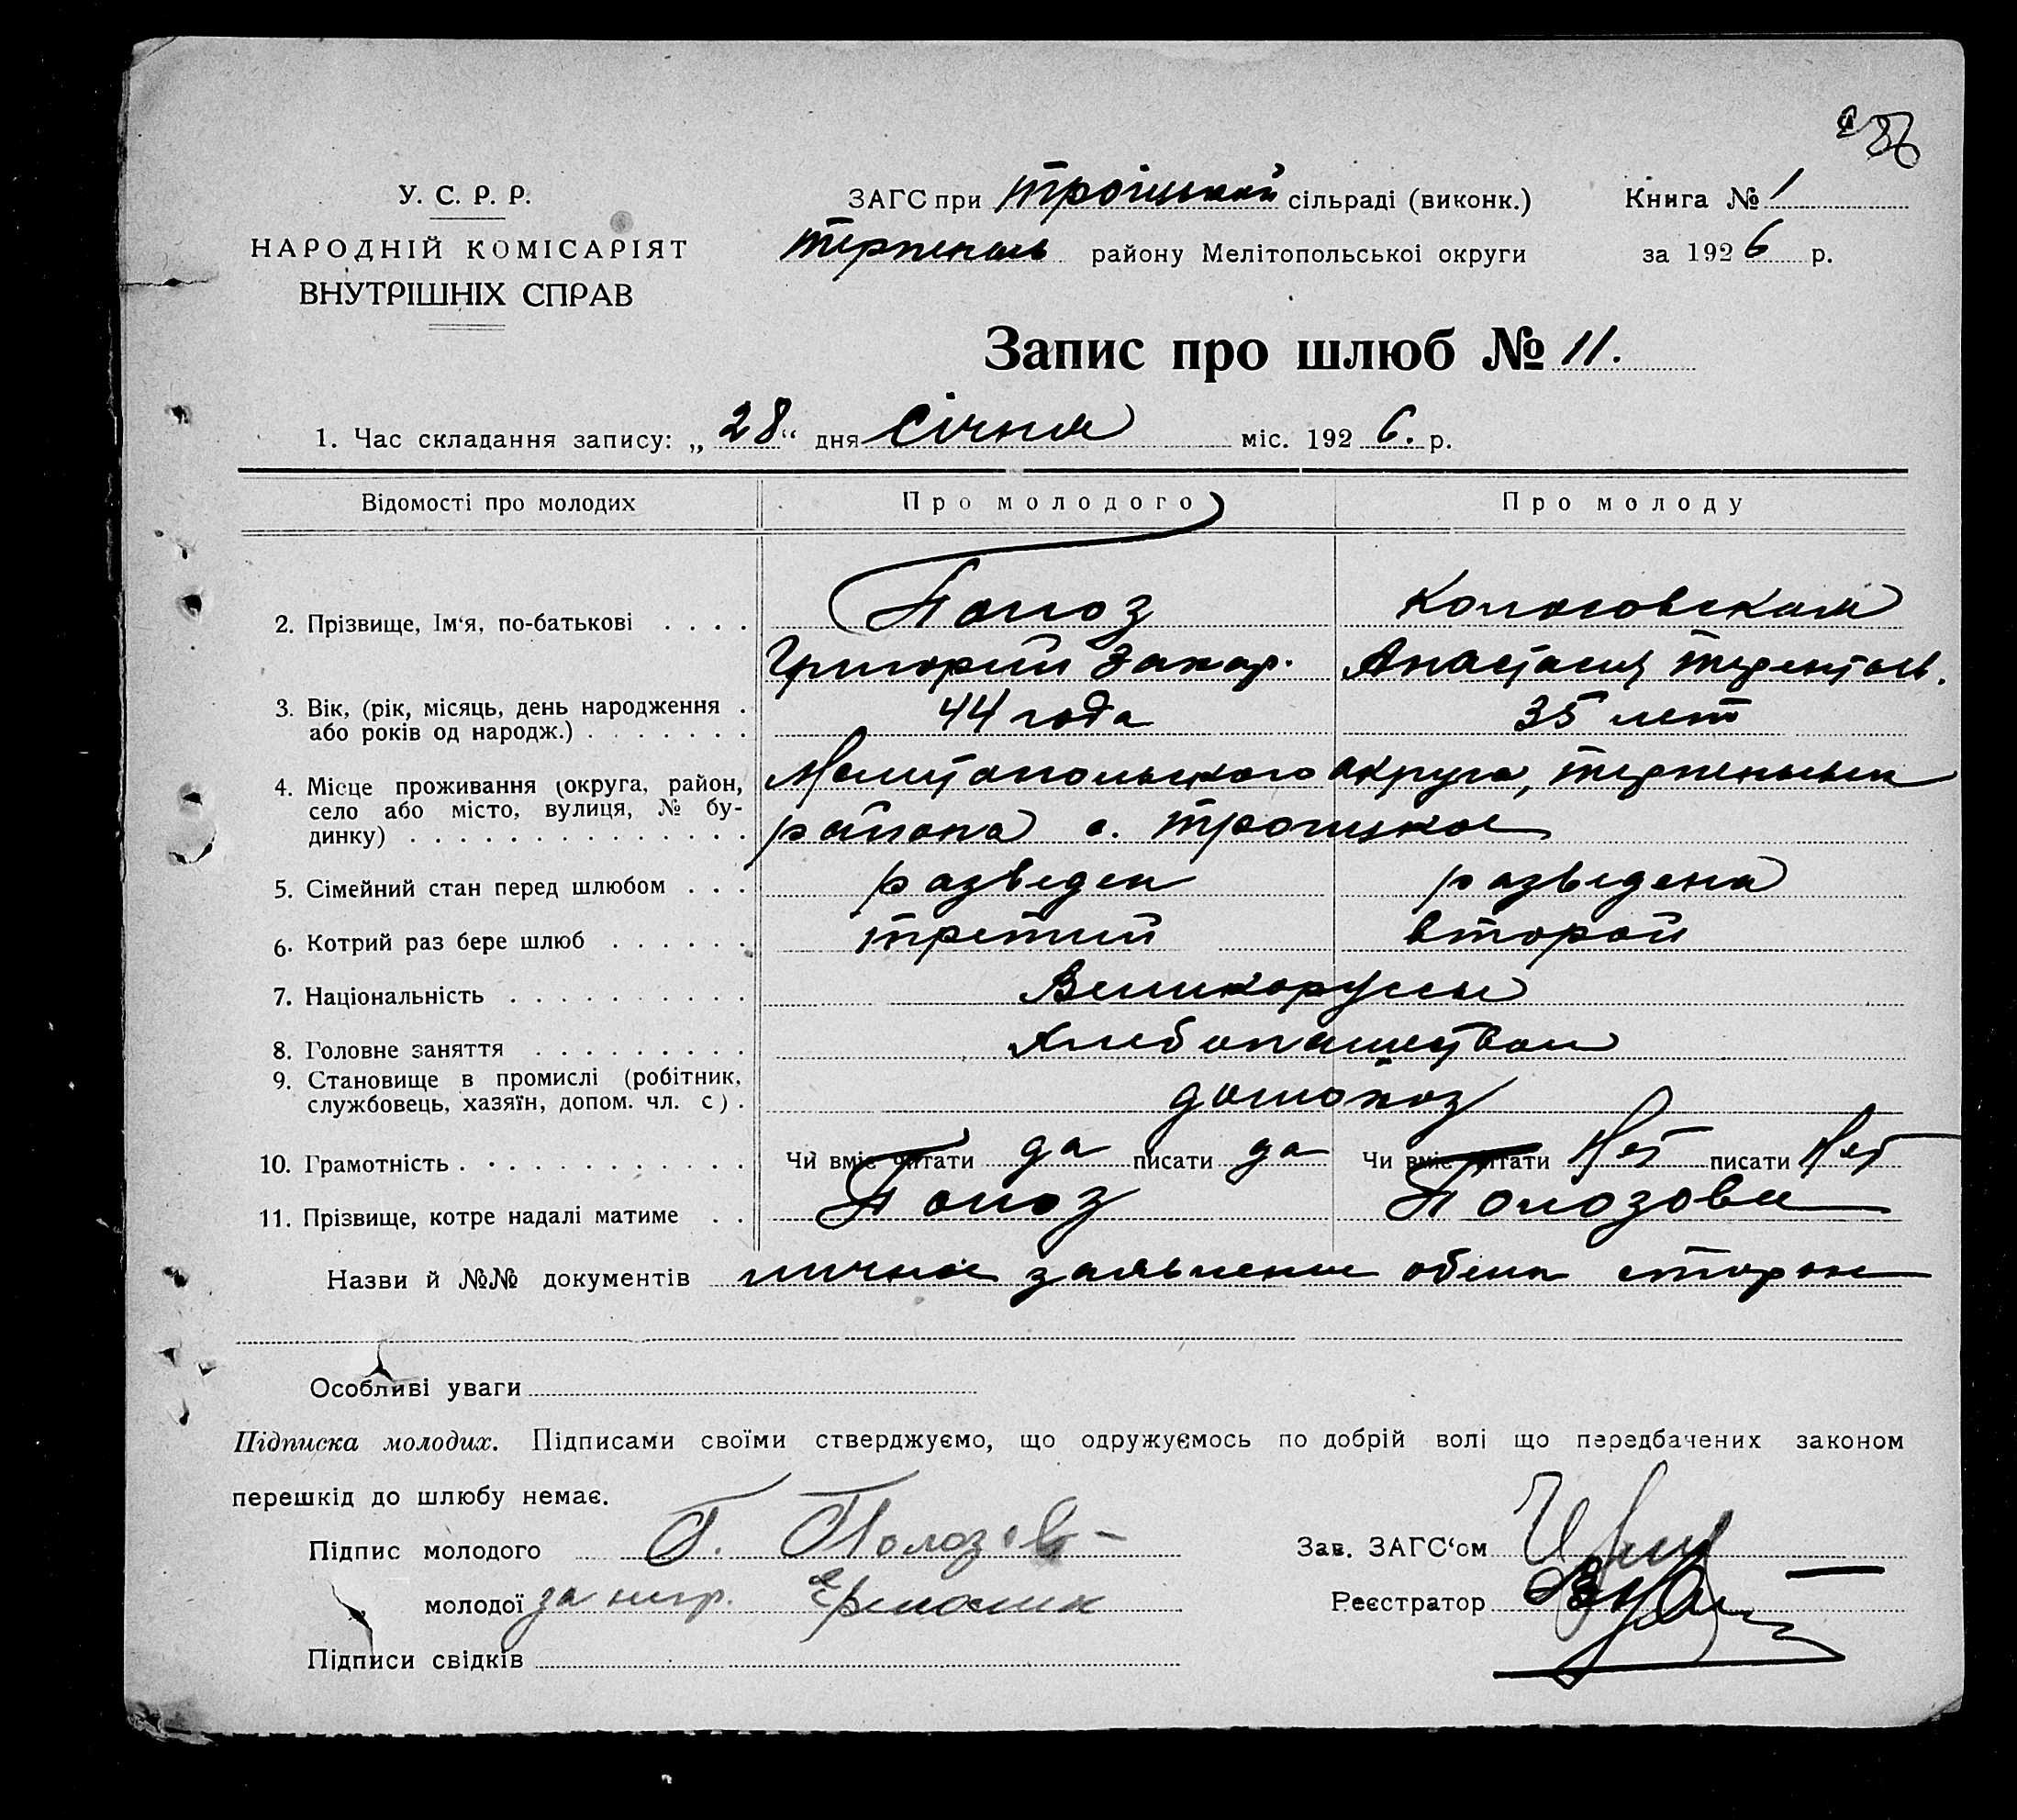 86
У. С. Р. Р.
НАРОДНІЙ КОМІСАРІЯТ
ВНУТРІШНІХ СПРАВ
ЗАГС при Троицкой сільраді (виконк.)
Терпеньев району Мелітопольськоі округи
Книга № 1
за 1926 р.
Запис про шлюб № 11.
1. Час складання запису: „28“ дня Січня міс. 1926. р.
Відомості про молодих Про молодого Про молоду
2. Прізвище, Ім‘я, по-батькові . . . . Полоз Колосовская
Григорий Захар. Анастасия Терентьев.
3. Вік, (рік, місяць, день народження . 44 года 35 лет
або років од народж.) . . . . . . .
4. Місце проживання (округа, район, Мелитопольского округа, Терпеньевск
село або місто, вулиця, № бу-
динку) . . . . . . . . . . . . . . района с. Троицкое
5. Сімейний стан перед шлюбом . . . разведен разведена
6. Котрий раз бере шлюб . . . . . . третий второй
7. Національність . . . . . . . . . . Великоруссы
8. Головне заняття . . . . . . . . . Хлебопашеством
9. Становище в промислі (робітник,
службовець, хазяїн, допом. чл. с) . домохоз
10. Грамотність . . . . . . . . . . . . Чи вміє читати да писати да Чи вміє читати Нет писати Нет
11. Прізвище, котре надалі матиме . . Полоз Полозова
Назви й №№ документів личное заявление обеих сторон
Особливі уваги
Підписка молодих. Підписами своїми стверджуємо, що одружуємось по добрій волі що передбачених законом
перешкід до шлюбу немає.
Підпис молодого Г. Полозов
молодої за негр. Ермолин
Підписи свідків
Зав. ЗАГС‘ом
Реєстратор